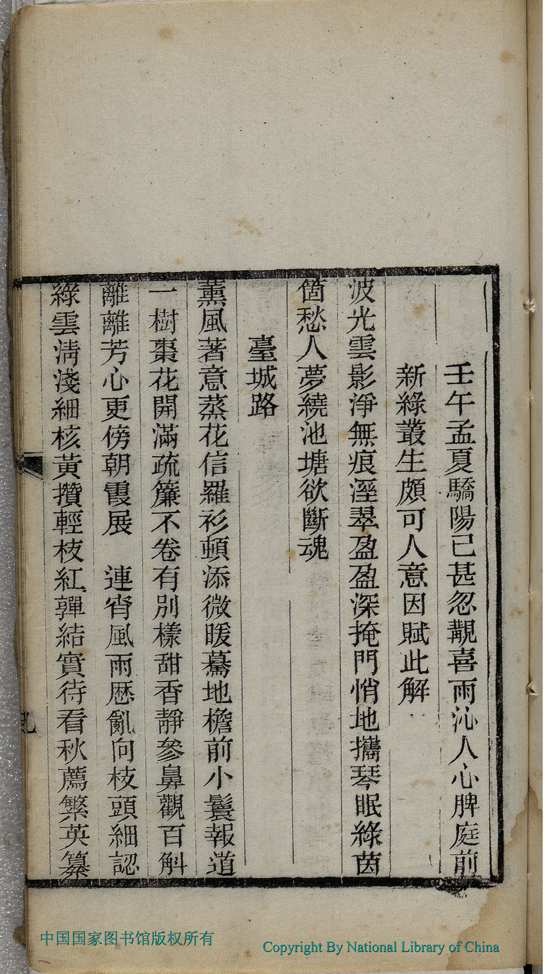 壬午孟夏驕陽已甚忽覯喜雨沁人心脾庭前
新綠叢生頗可人意因賦此解
波光雲影淨無痕溼翠盈盈深掩門悄地攜琴眠綠茵
箇愁人夢繞池塘欲斷魂
臺城路
薰風著意蒸花信羅衫頓添微暖驀地檐前小鬟報道
一樹棗花開滿疏簾不卷有別樣甜香靜參鼻觀百斛
離離芳心更傍朝霞展　連宵風雨歷亂向枝頭細認
綠雲清淺細核黃攢輕枝紅嚲結實待看秋薦繁英纂
九
中国国家图书馆版权所有
Copyright By National Library of China